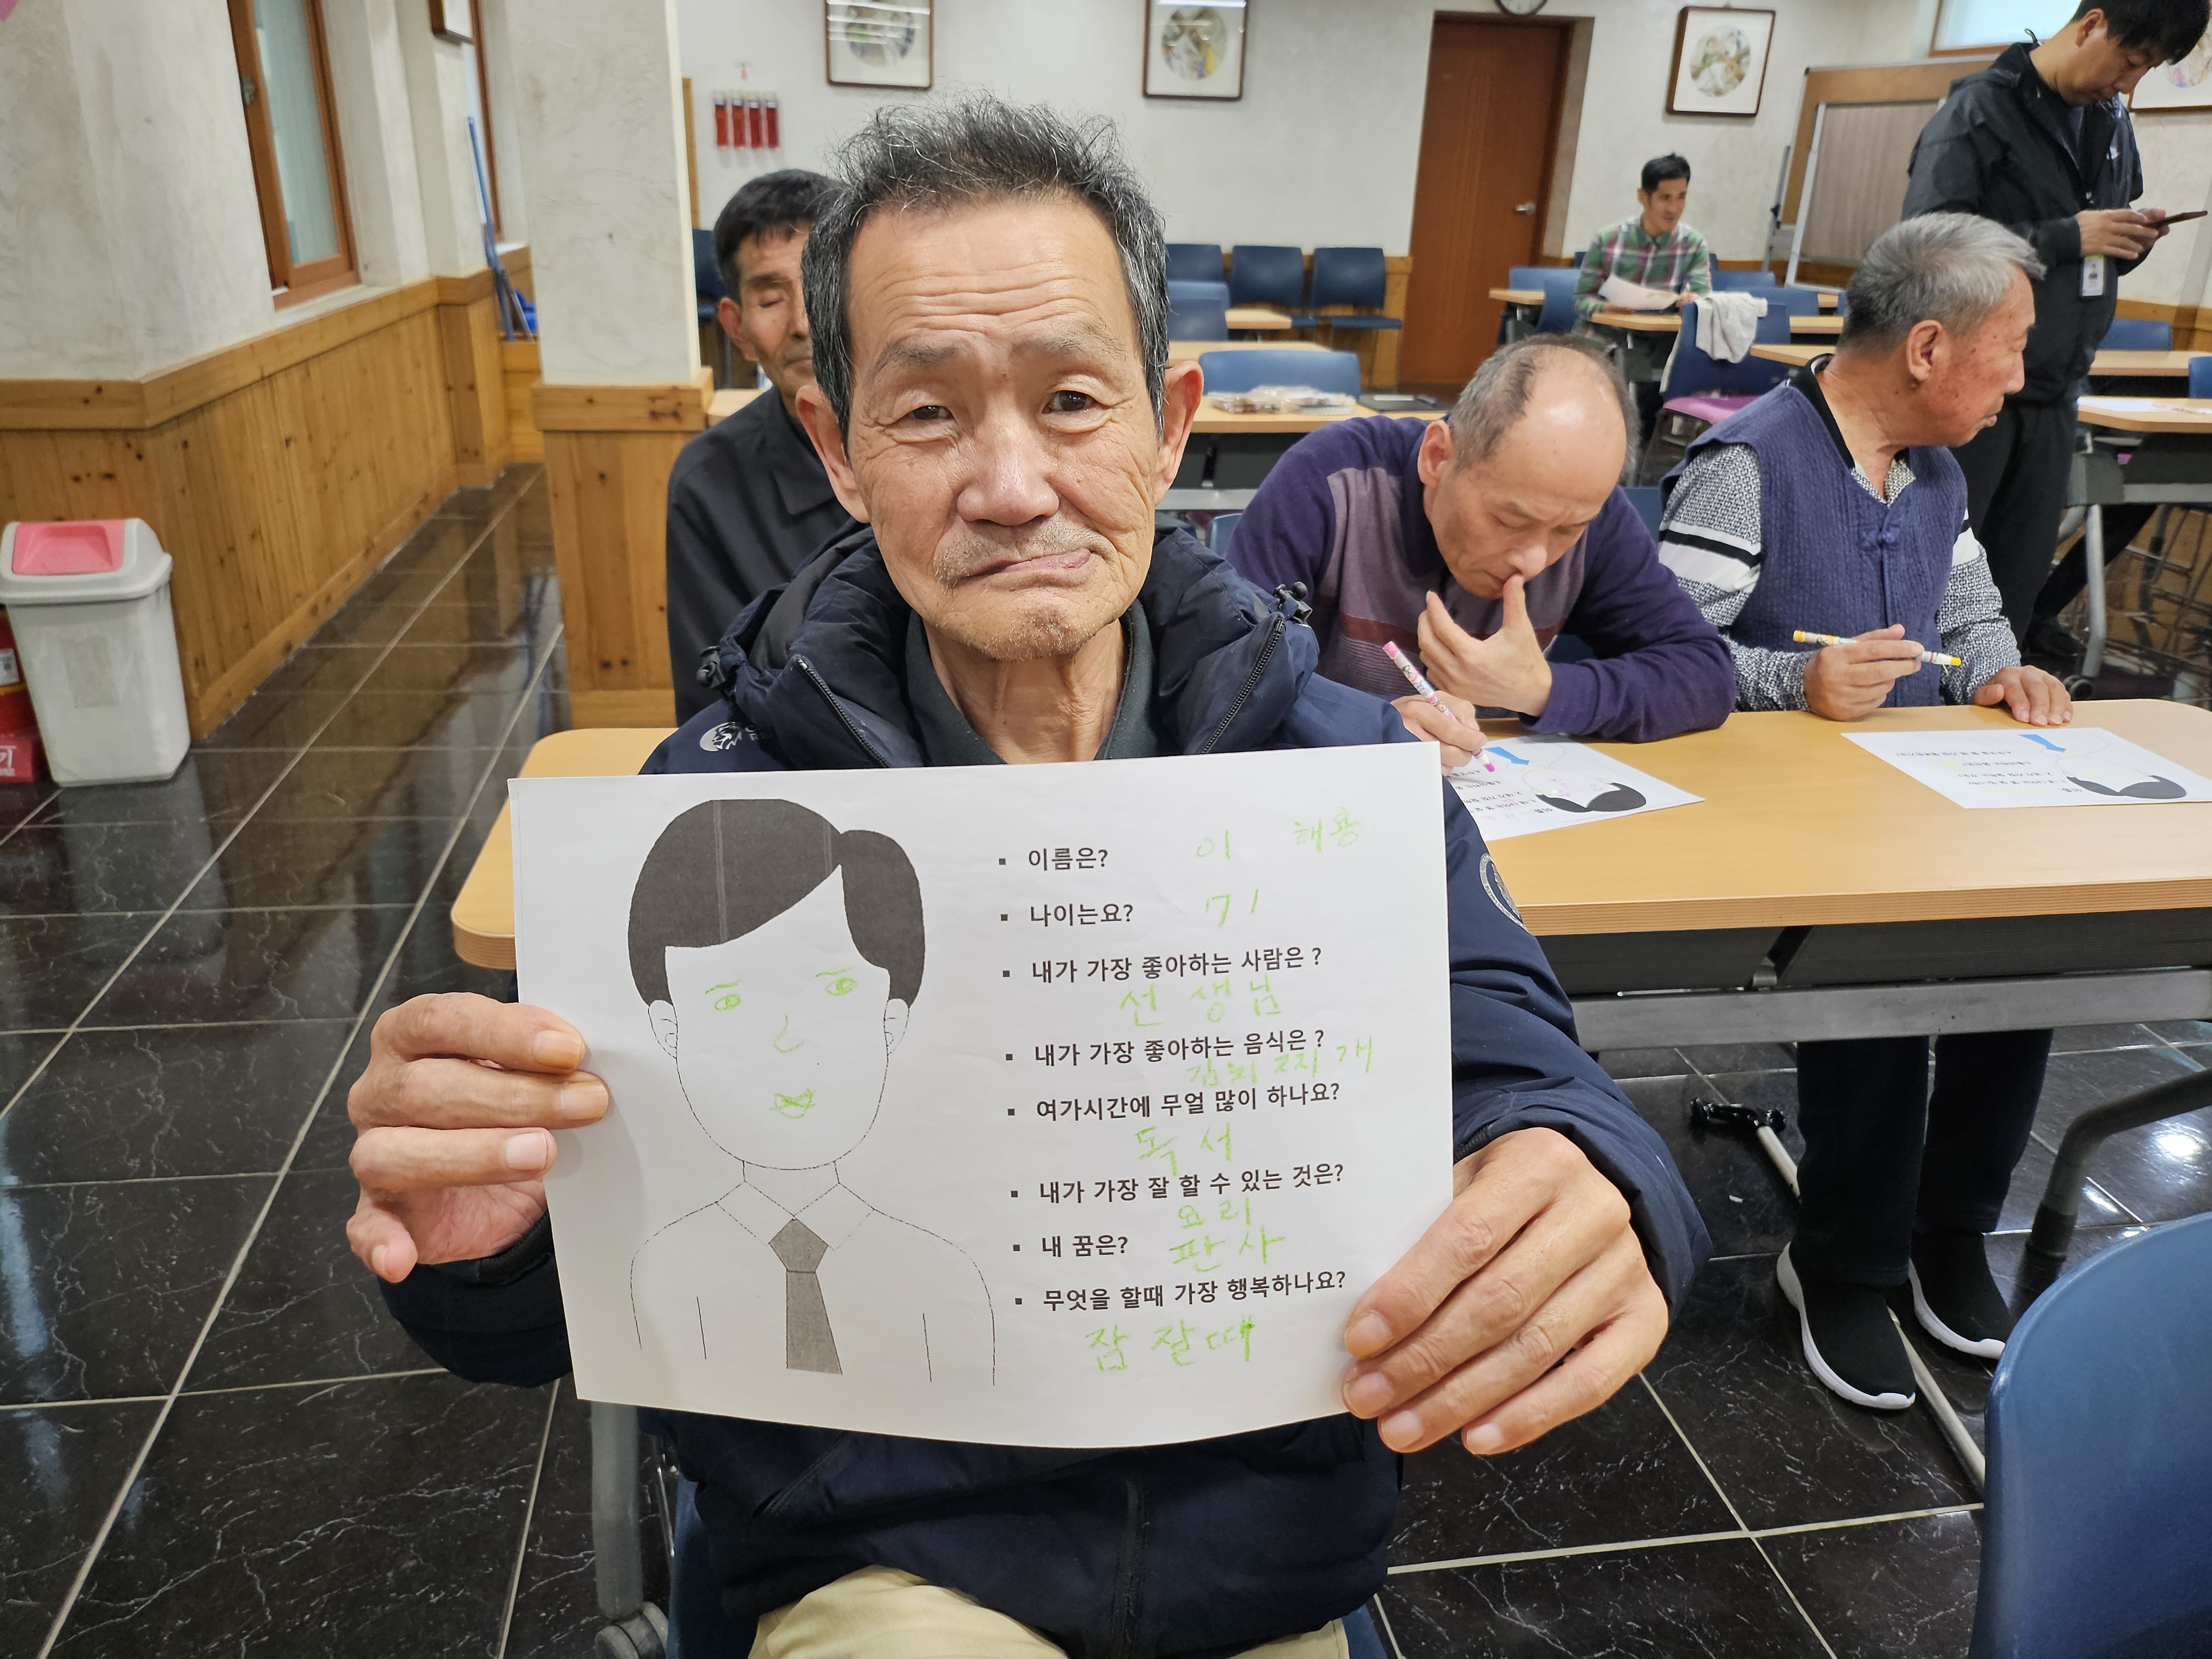 이름은? 이 해용
나이는요? 71
내가 가장 좋아하는 사람은 ?
선생님
내가 가장 좋아하는 음식은 ?
김치찌개
여가시간에 무얼 많이 하나요?
독서
내가 가장 잘 할 수 있는 것은?
요리
내 꿈은? 판사
무엇을 할때 가장 행복하나요?
잠 잘때